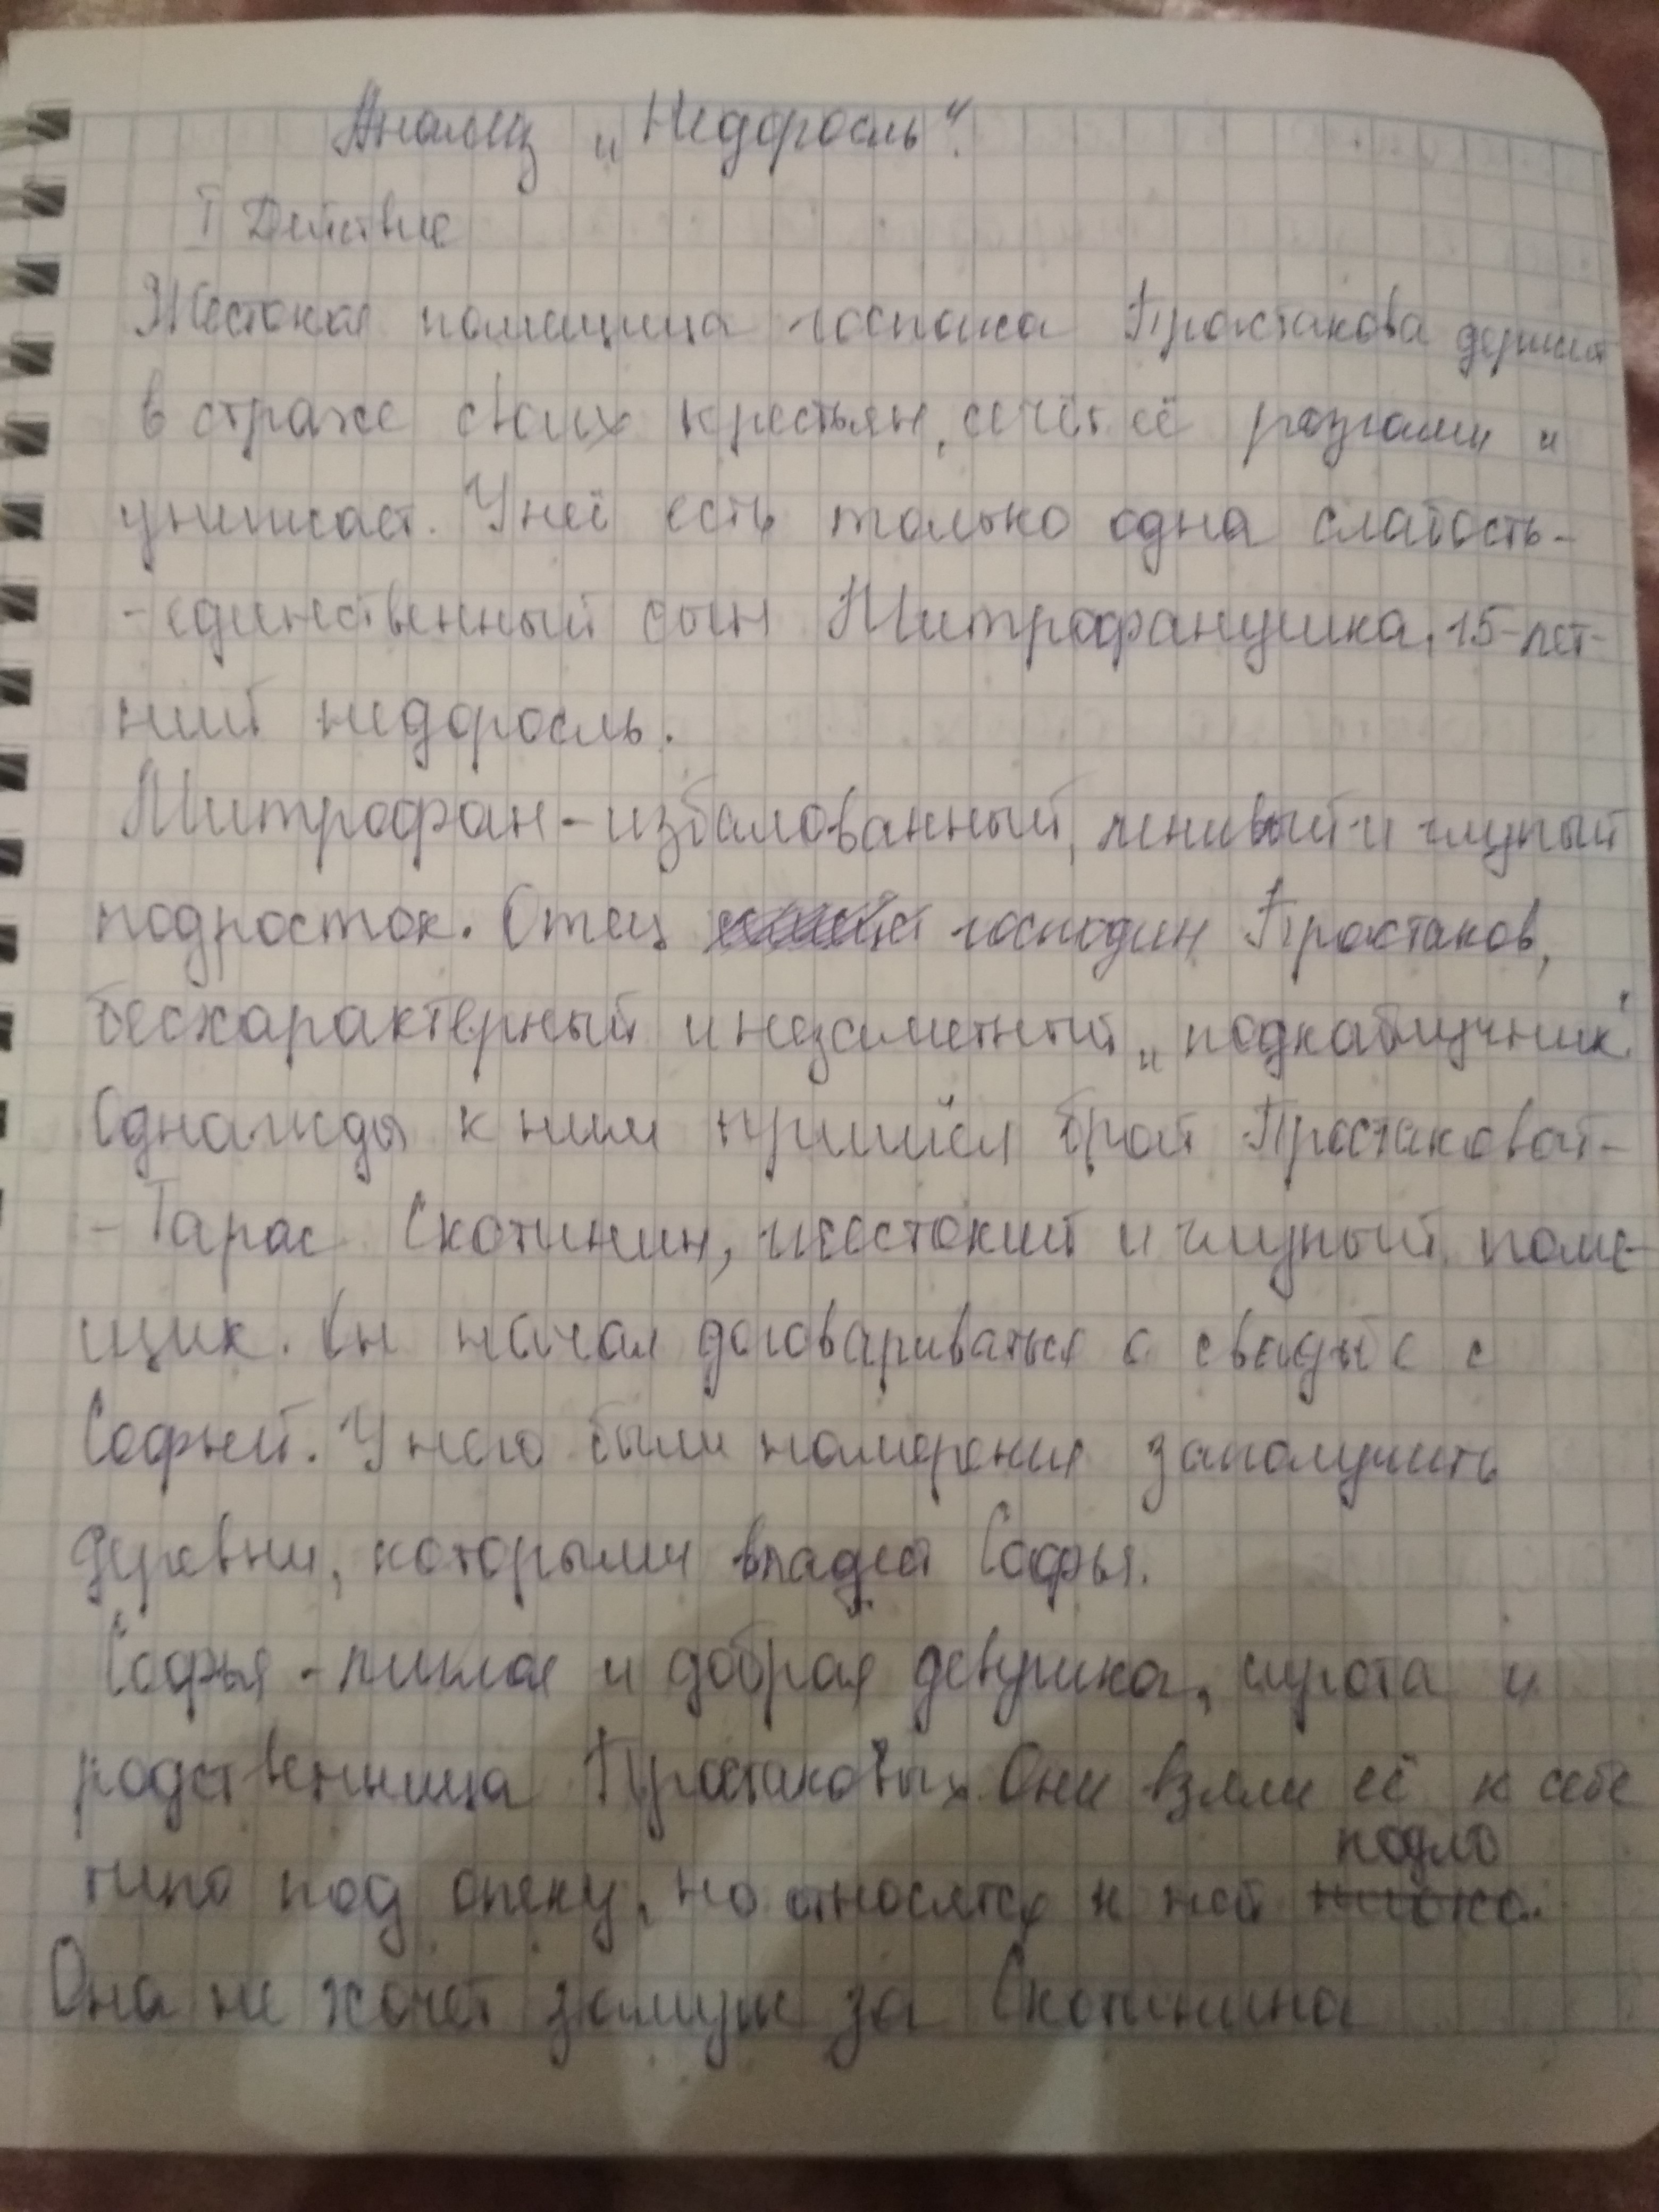 Анализ „Недоросль".
I Действие
Жестокая помещица госпожа Простакова держит
в страхе своих крестьян, сечёт её розгами и
унижает. У неё есть только одна слабость-
-единственный сын Митрофанушка, 15-лет-
ний недоросль.
Митрофан-избалованный, ленивый и глупый
подросток. Отец господин Простаков,
бесхарактерный и незаметный „подкаблучник".
Однажды к ним пришёл брат Простаковой-
-Тарас Скотинин, жестокий и глупый поме-
щик. Он начал договариваться о свадьбе с
Софьей. У него были намерения заполучить
деревни, которыми владеет Софья.
Софья - милая и добрая девушка, сирота и
родственница Простаковых. Они взяли её к себе
типо под опеку, но относятся к ней подло.
Она не хочет замуж за Скотинина